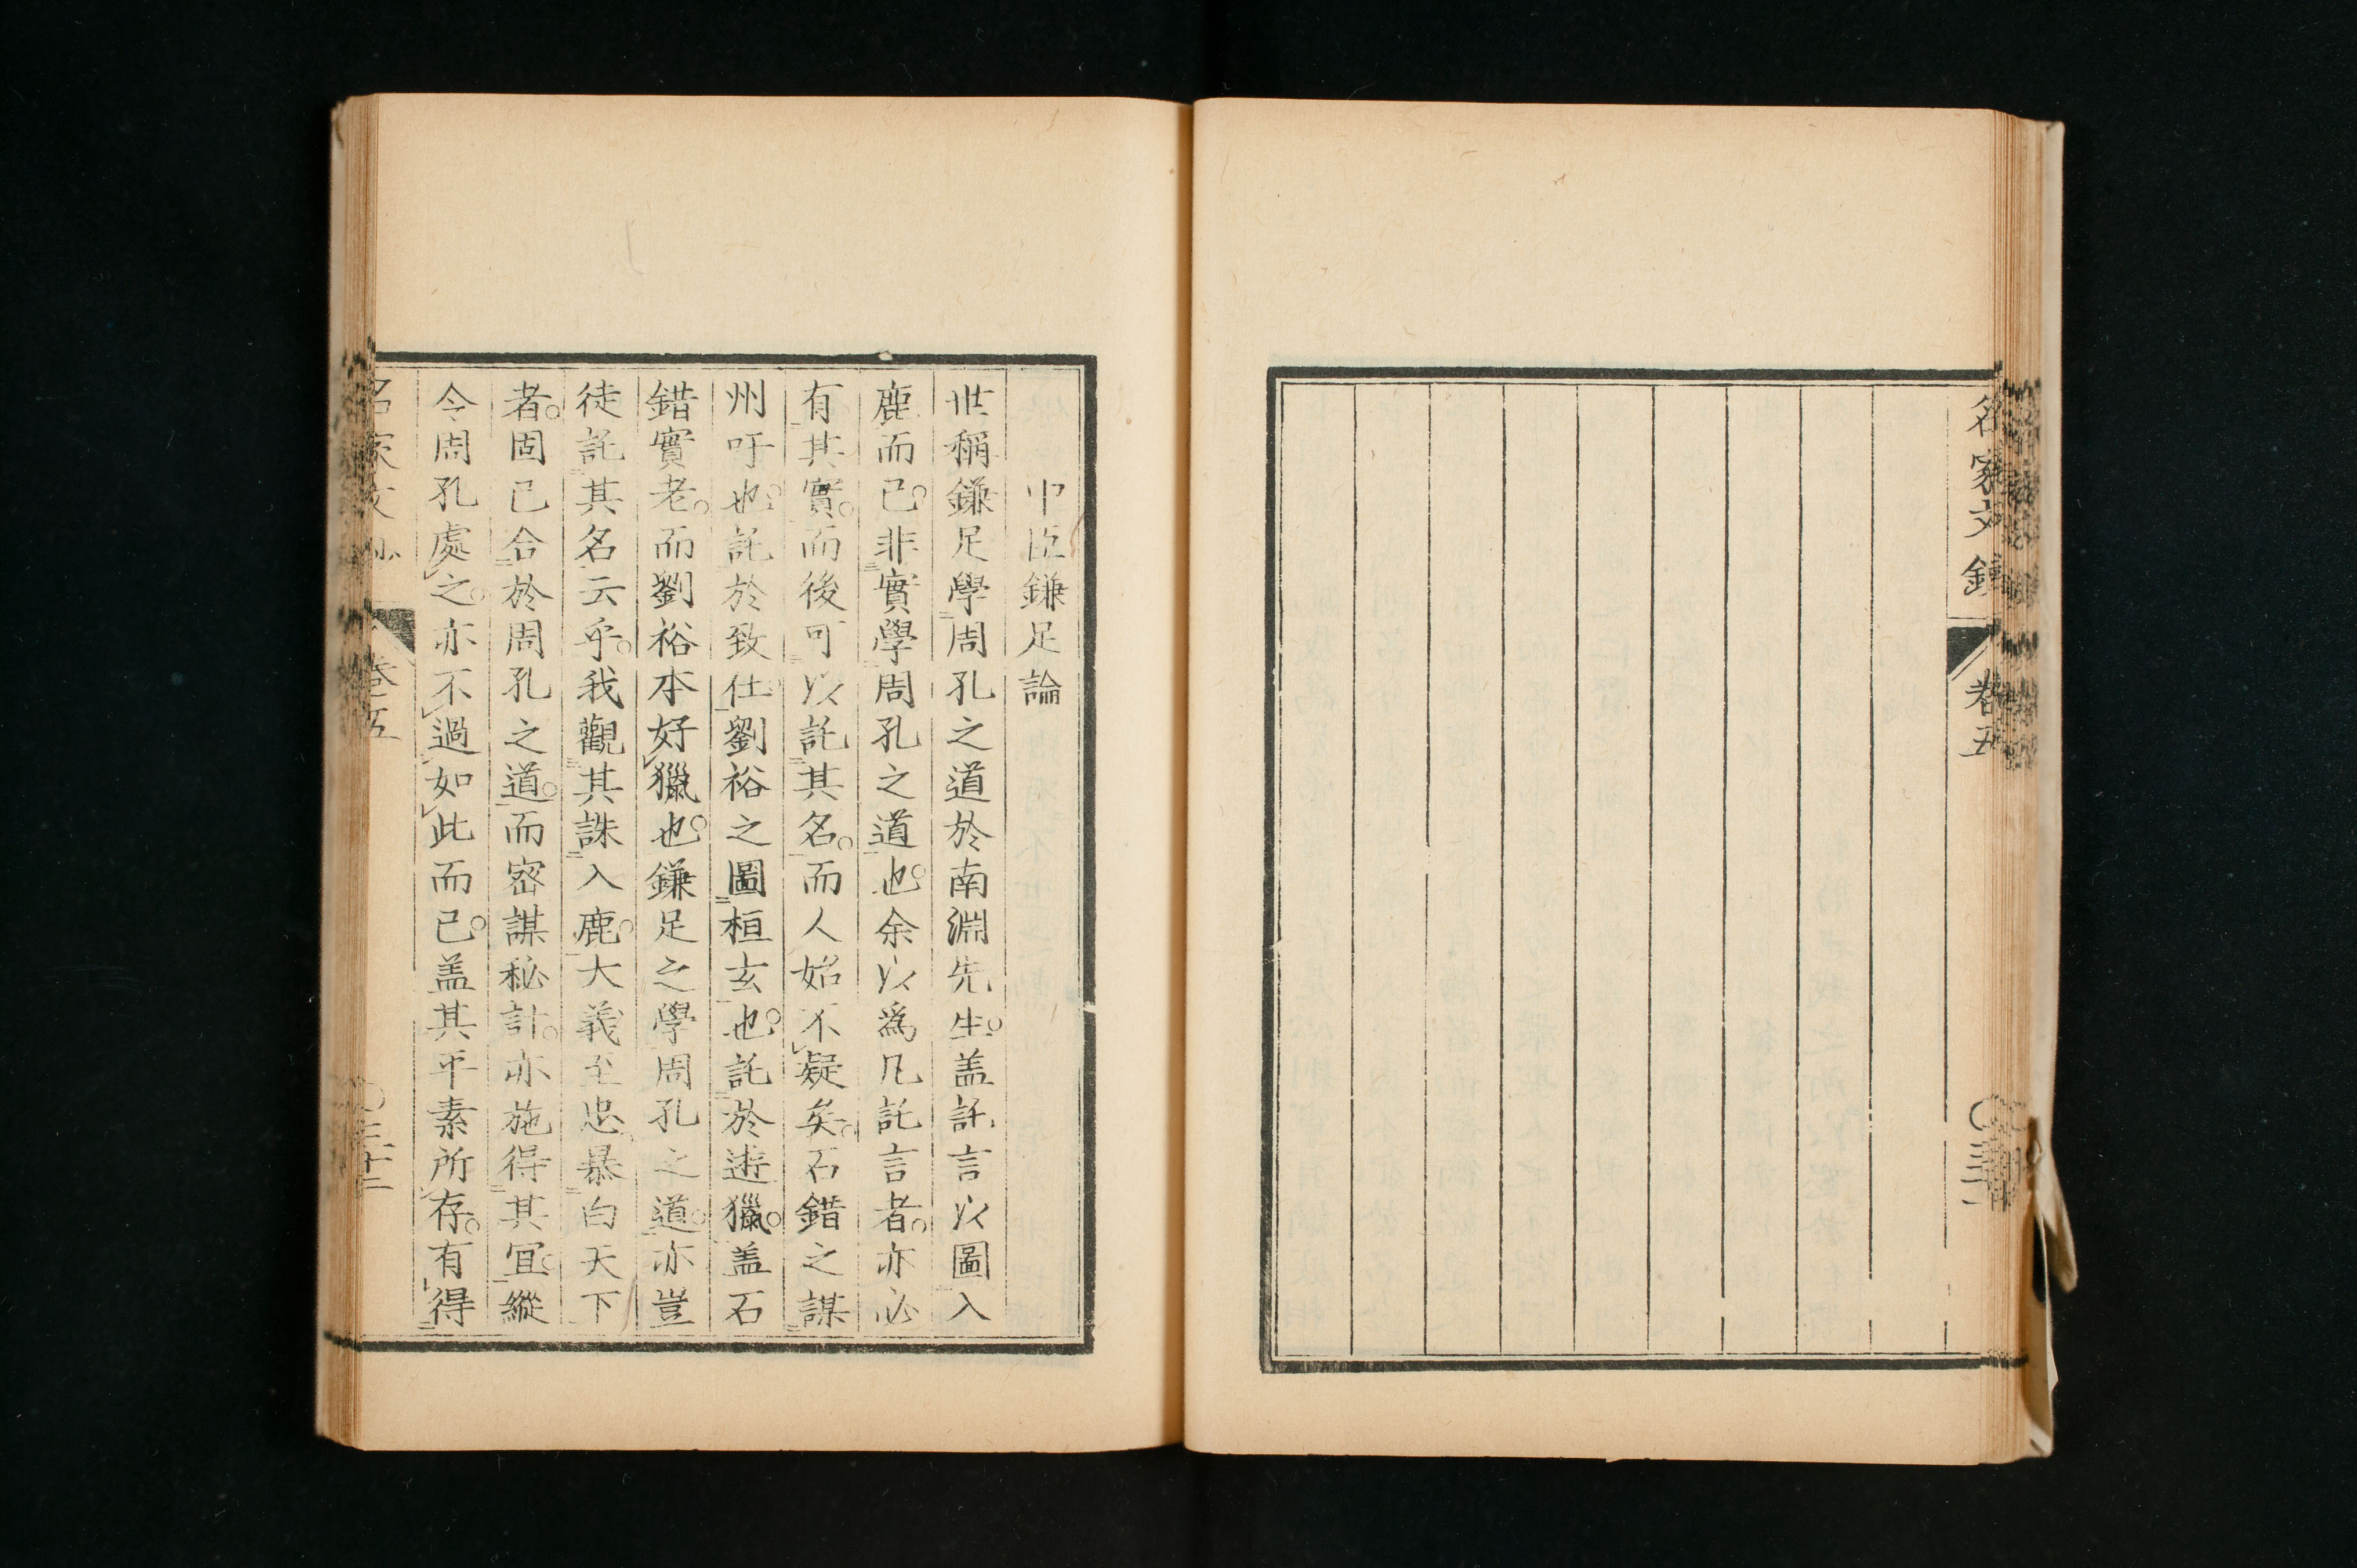 名家文鈔
卷五
〇三十一
中臣鎌足論
世稱鎌足學周孔之道於南淵先生。盖託言以圖入
鹿而已。非實學周孔之道也。余以爲凡託言者。亦必
有其實。而後可以託其名。而人始不疑矣。石錯之謀
州吁也。託於致仕劉裕之圖桓玄也。託於遊獵。盖石
錯實老。而劉裕本好獵也。鎌足之學周孔之道。亦豈
徒託其名云乎。我觀其誅入鹿。大義至忠。暴白天下
者。固已合於周孔之道。而密謀秘計。亦施得其宜。縱
令周孔處之。亦不過如此而已。盖其平素所存。有得
名家文鈔
卷五
〇三十二